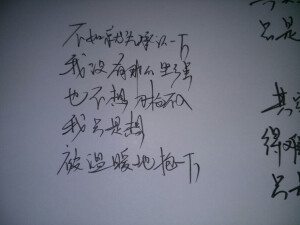 不如就先承认一下
我没有那么坚强
也不想再抬杠
我只是想
被温暖地抱一下
其实
得
只是
只是